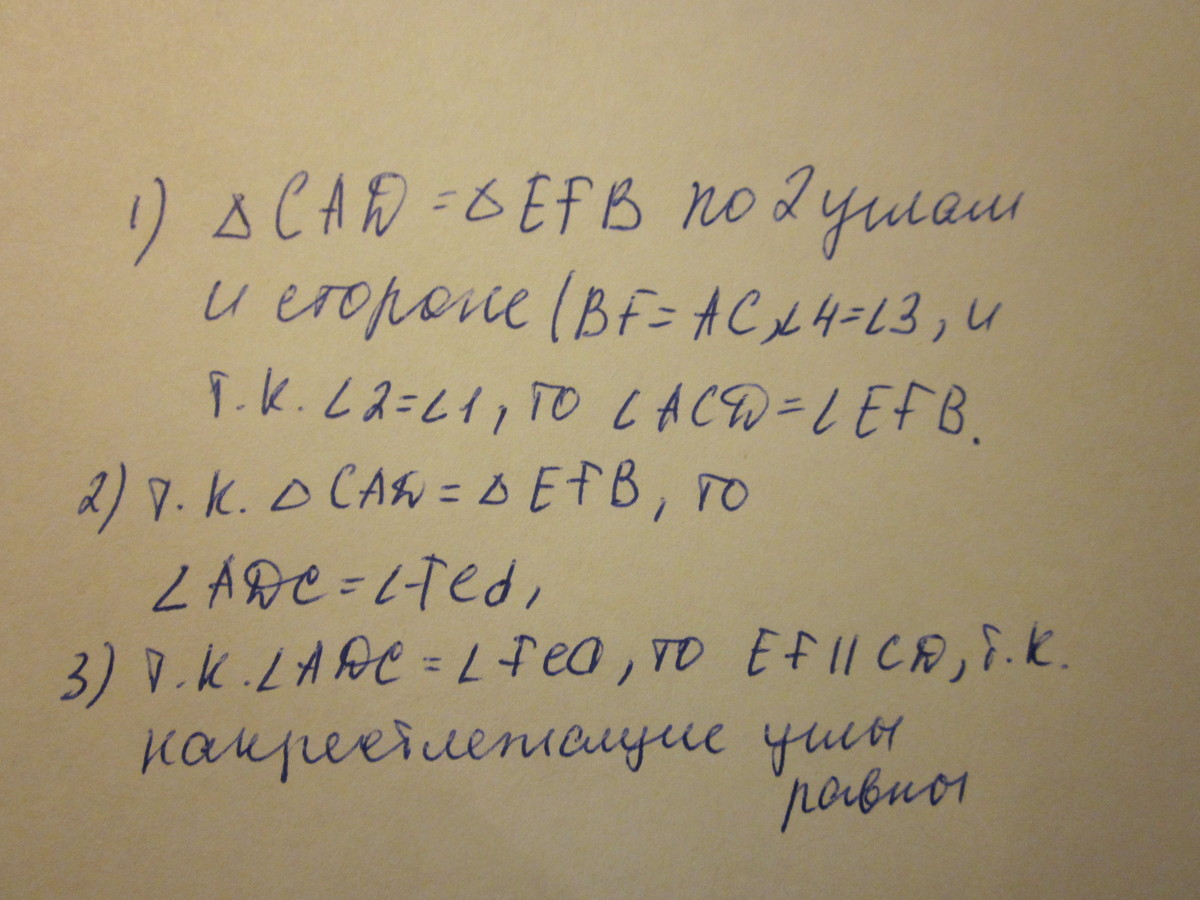 1) △CAD = △EFB по 2 углам
и стороне (BF = AC, ∠4=∠3, и
т.к. ∠2=∠1, то ∠ACD=∠EFB.
2) т.к. △CAD = △EFB, то
∠ADC = ∠FEd,
3) т.к. ∠ADC = ∠FED, то EF || CD, т.к.
накрестлежащие углы
равны